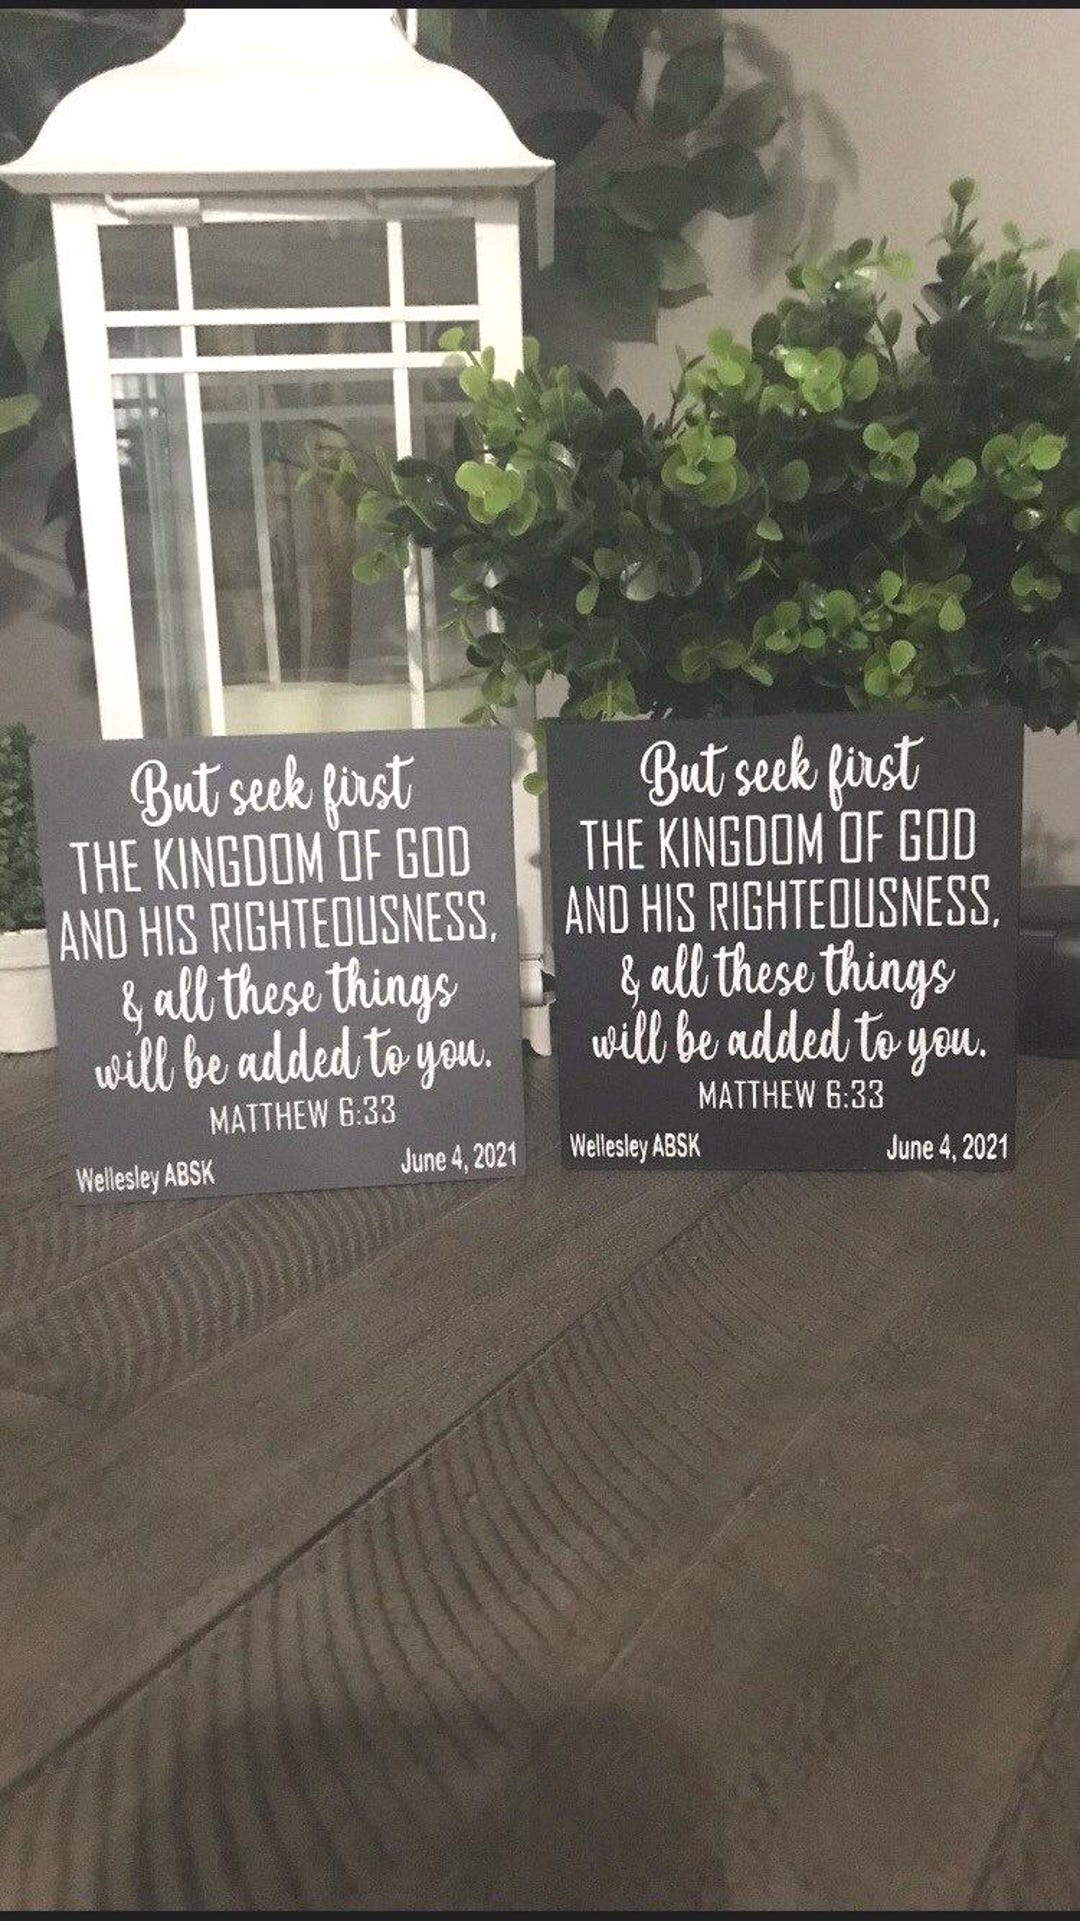 But seek first
THE KINGDOM OF GOD
AND HIS RIGHTEOUSNESS,
& all these things
will be added to you.
MATTHEW 6:33
Wellesley ABSK June 4, 2021
But seek first
THE KINGDOM OF GOD
AND HIS RIGHTEOUSNESS,
& all these things
will be added to you.
MATTHEW 6:33
Wellesley ABSK June 4, 2021